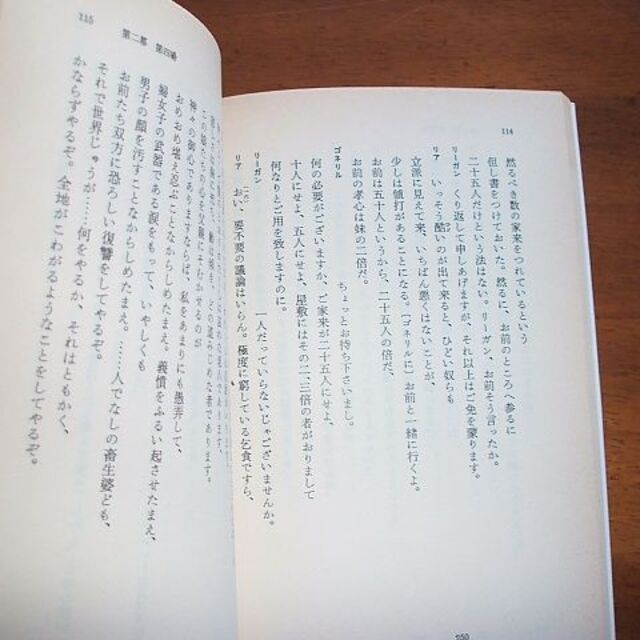 114
然るべき数の家来をつれているという
但し書をつけておいた。然るに、お前のところへ参るに
二十五人だけという法はない。リーガン、お前そう言ったか。
リーガン くり返して申しあげますが、それ以上はご免を蒙ります。
リア いっそう酷いのが出て来ると、ひどい奴らも
立派に見えて来、いちばん悪くはないことが、
少しは値打があることになる。〔ゴネリルに〕お前と一緒に行くよ。
お前は五十人というから、二十五人の倍だ。
お前の孝心は妹の二倍だ。
ゴネリル ちょっとお待ち下さいまし。
何の必要がございますか、ご家来が二十五人にせよ、
十人にせよ、五人にせよ、屋敷にはその二、三倍の者がおりまして
何なりとご用を致しますのに。
リーガン 一人だっていらないじゃございませんか。
リア おい、要不要の議論はいらん。極度に窮している乞食ですら、
250
115
第二幕 第四場
この娘たちの心を父親にそむかせるのが
神々の御心でありますならば、私をあまりにも愚弄して、
おめおめ堪え忍ぶことなからしめたまえ。義憤をふるい起させたまえ、
婦女子の武器である涙をもって、いやしくも
男子の顔を汚すことなからしめたまえ。……人でなしの畜生婆ども、
お前たち双方に恐ろしい復讐をしてやるぞ。
それで世界じゅうが……何をやるか、それはともかく、
かならずやるぞ。全地がこわがるようなことをしてやるぞ。